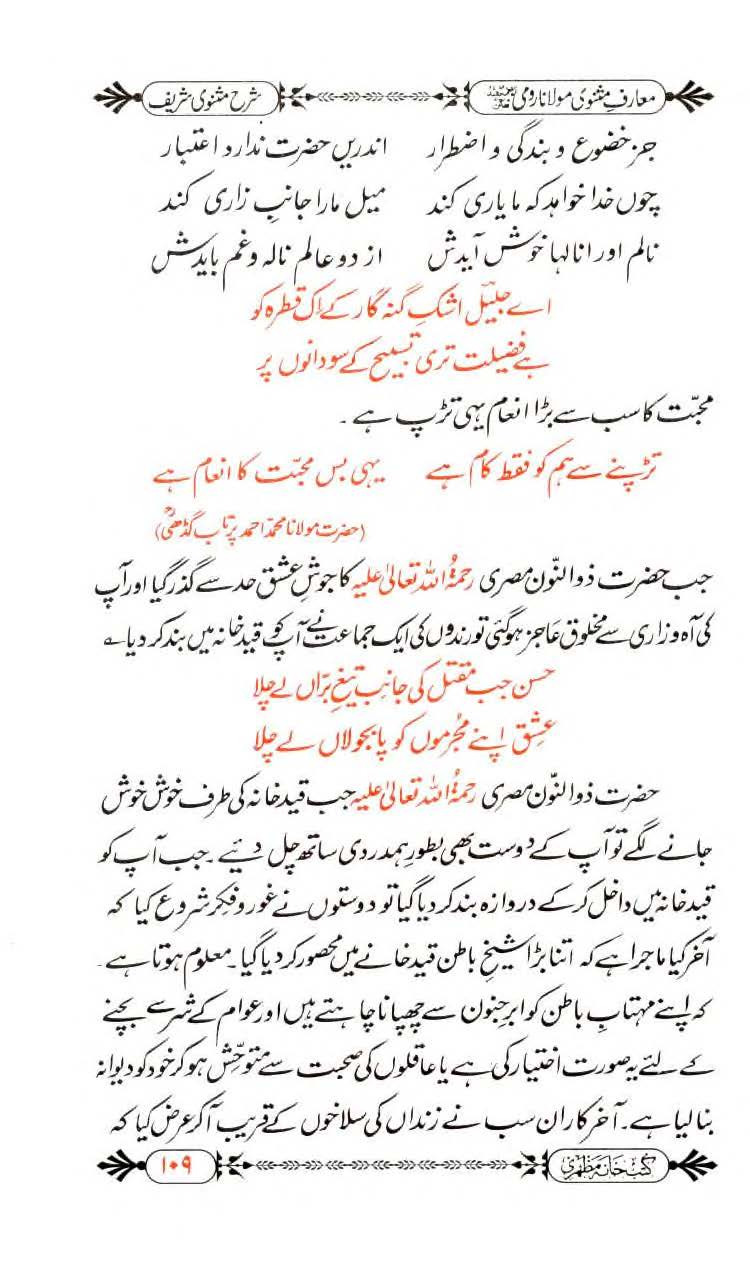 معارفِ مثنوی مولانا رومی شرح مثنوی شریف
جز خضوع و بندگی و اضطرار اندریں حضرت ندارد اعتبار
چوں خدا خواہد کہ ما یاری کند میل ما را جانبِ زاری کند
نالم او را نالہا خوش آیدش از دو عالم نالہ و غم بایدش
اے جلیلؔ اشکِ گنہ گار کے اک قطرہ کو
ہے فضیلت تری تسبیح کے سو دانوں پر
محبّت کا سب سے بڑا انعام یہی تڑپ ہے ۔
تڑپنے سے ہم کو فقط کام ہے یہی بس محبّت کا انعام ہے
(حضرت مولانا محمد احمد پرتاب گڈھیؒ)
جب حضرت ذوالنّون مصری رحمۃُ اللہ تعالیٰ علیہ کا جوشِ عشق حد سے گذر گیا اور آپ
کی آہ و زاری سے مخلوق عاجز ہوگئی تو رندوں کی ایک جماعت نے آپ کو قید خانہ میں بند کر دیا ؎
حسن جب مقتل کی جانب تیغِ برّاں لے چلا
عشق اپنے مجرموں کو پابجولاں لے چلا
حضرت ذوالنّون مصری رحمۃُ اللہ تعالیٰ علیہ جب قید خانہ کی طرف خوش خوش
جانے لگے تو آپ کے دوست بھی بطورِ ہمدردی ساتھ چل دئیے ۔ جب آپ کو
قید خانہ میں داخل کر کے دروازہ بند کر دیا گیا تو دوستوں نے غور و فکر شروع کیا کہ
آخر کیا ماجرا ہے کہ اتنا بڑا شیخِ باطن قید خانے میں محصور کر دیا گیا ۔ معلوم ہوتا ہے ۔
کہ اپنے مہتابِ باطن کو ابرِ جنون سے چھپانا چاہتے ہیں اور عوام کے شر سے بچنے
کے لئے یہ صورت اختیار کی ہے یا عاقلوں کی صحبت سے متوحّش ہو کر خود کو دیوانہ
بنا لیا ہے ۔ آخر کار ان سب نے زنداں کی سلاخوں کے قریب آکر عرض کیا کہ
کتب خانہ مظہری ۱۰۹